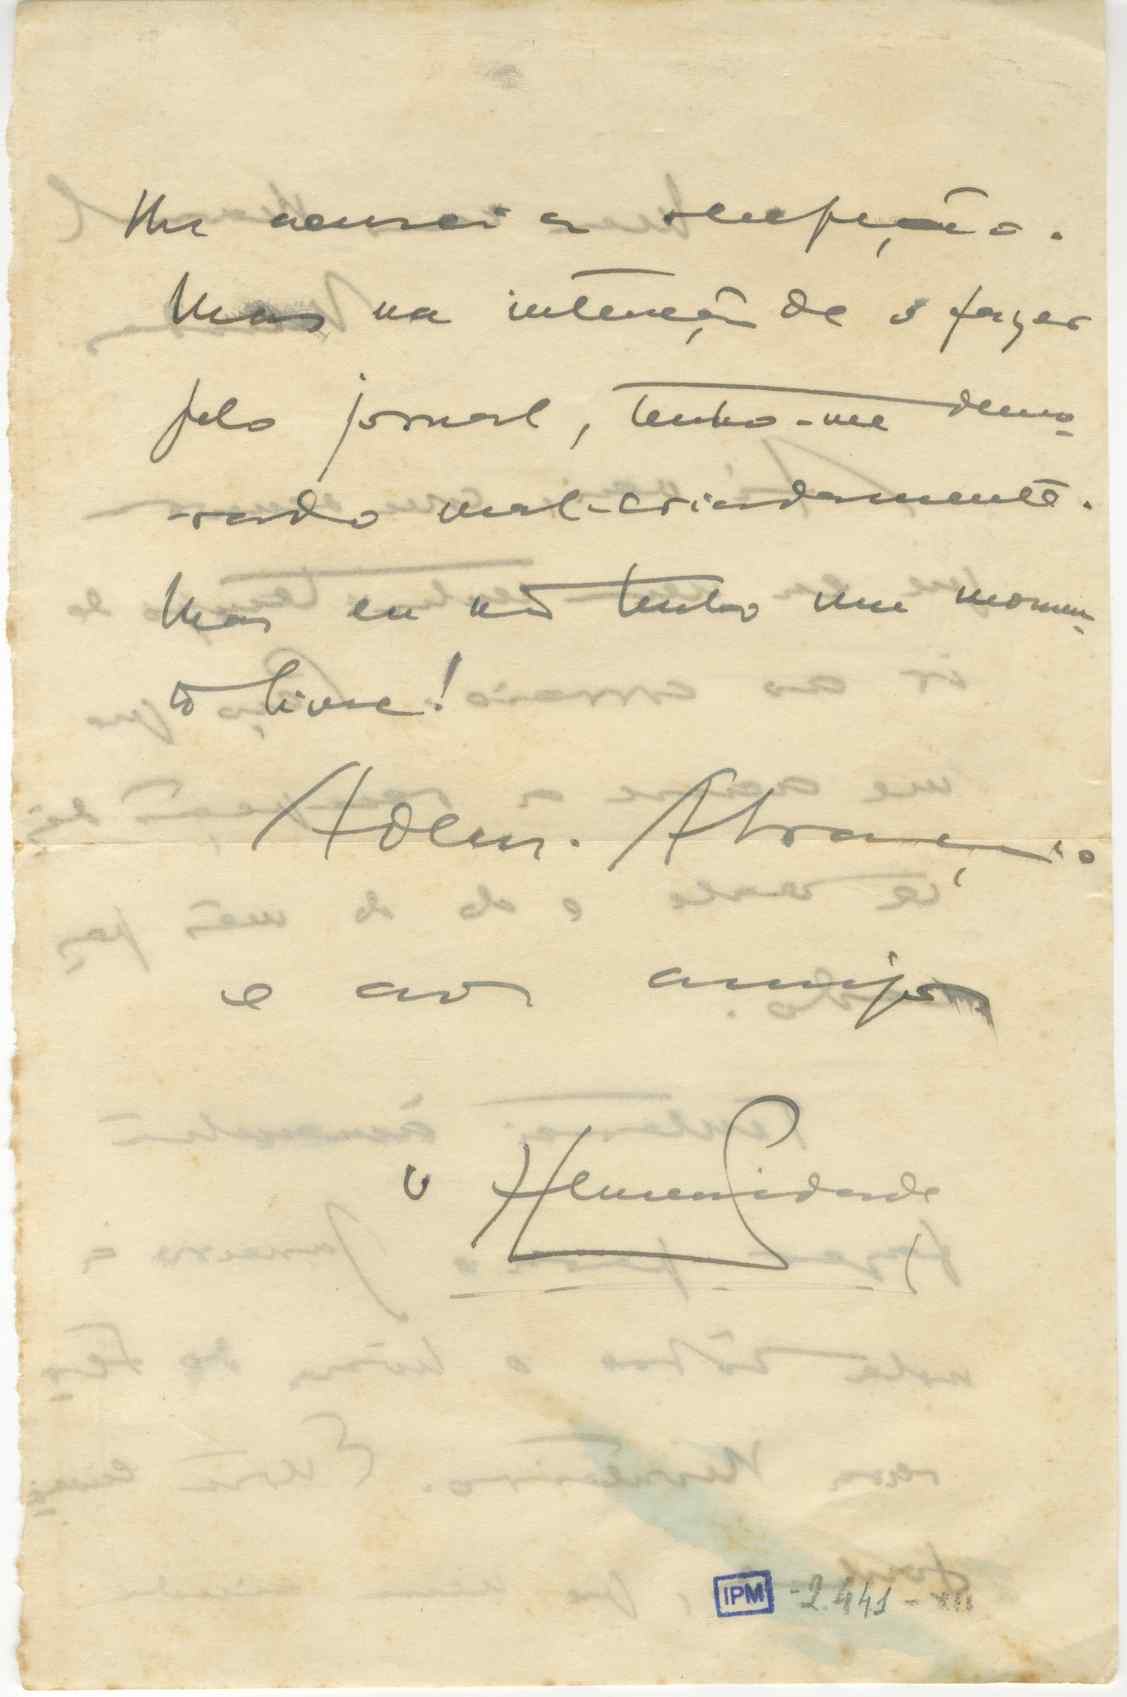 lhe acusei a recepção.
Mas na intenção de o fazer
pelo jornal, tenho-me demo-
rado mal-criadamente.
Mas eu não tenho um momen-
to livre!
Adeus. Abraço
e ao amigo
o
IPM -2.441-XII